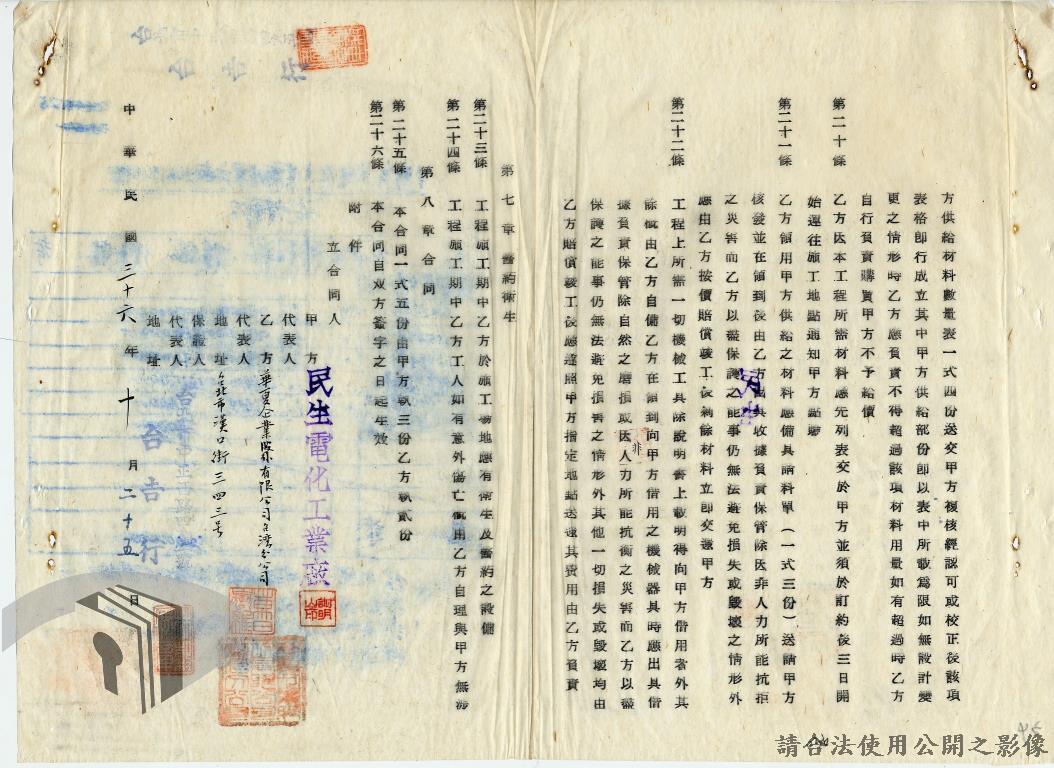 方供給材料數量表一式四份送交甲方複核經認可或校正後該項
表格即行成立其中甲方供給部份即以表中所載爲限如無設計變
更之情形時乙方應負責不得超過該項材料用量如有超過時乙方
自行負責購買甲方不予給價
第二十條 乙方因本工程所需材料應先列表交於甲方並須於訂約後三日開
始運往施工地點通知甲方點驗
第二十一條 乙方領用甲方供給之材料應備具請料單（一式三份）送請甲方
核發並在領到後由乙方出具收據負責保管除因非人力所能抗拒
之災害而乙方以盡保護之能事仍無法避免損失或毀壞之情形外
應由乙方按價賠償竣工後剩餘材料立即交還甲方
第二十二條 工程上所需一切機械工具除說明書上載明得向甲方借用者外其
除概由乙方自備乙方在領到向甲方借用之機械器具時應出具借
據負責保管除自然之磨損或因人力所能抗衡之災害而乙方以盡
非
保護之能事仍無法避免損害之情形外其他一切損失或毀壞均由
乙方賠償竣工後應遵照甲方指定地點送還其費用由乙方負責
第七章 醫約衛生
第二十三條 工程施工期中乙方於施工場地應有衛生及醫約之設備
第二十四條 工程施工期中乙方工人如有意外傷亡概用乙方自理與甲方無涉
第八章 合同
第二十五條 本合同一式五份由甲方執三份乙方執貳份
第二十六條 本合同自双方簽字之日起生效
附件
立合同人
甲方 民生電化工業廠
代表人
乙方 華夏企業股份有限公司台灣分公司
代表人
地址 台北市漢口街三四三号
保證人
代表人
地址
中華民國三十六年十月二十五日
台吉行
請合法使用公開之影像